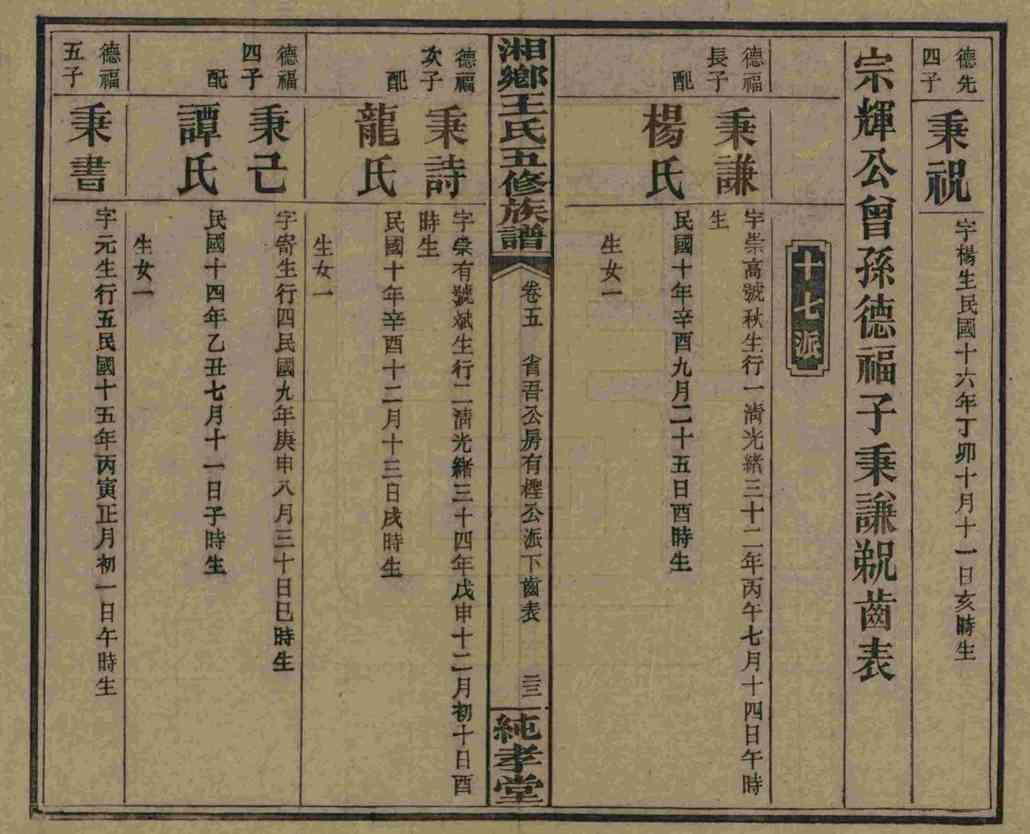 德先
四子
秉祝
字楊生民國十六年丁卯十月十一日亥時生
宗輝公曾孫德福子秉謙親齒表
十七派
德福
長子
秉謙
字崇高號秋生行一清光緒三十二年丙午七月十四日午時
生
配
楊氏
民國十年辛酉九月二十五日酉時生
生女一
湘鄉王氏五修族譜
卷五
省吾公房有檉公派下齒表
三三
純孝堂
德福
次子
秉詩
字崇有號斌生行二清光緒三十四年戊申十二月初十日酉
時生
配
龍氏
民國十年辛酉十二月十三日戌時生
生女一
德福
四子
秉己
字寄生行四民國九年庚申八月三十日巳時生
配
譚氏
民國十四年乙丑七月十一日子時生
生女一
德福
五子
秉書
字元生行五民國十五年丙寅正月初一日午時生